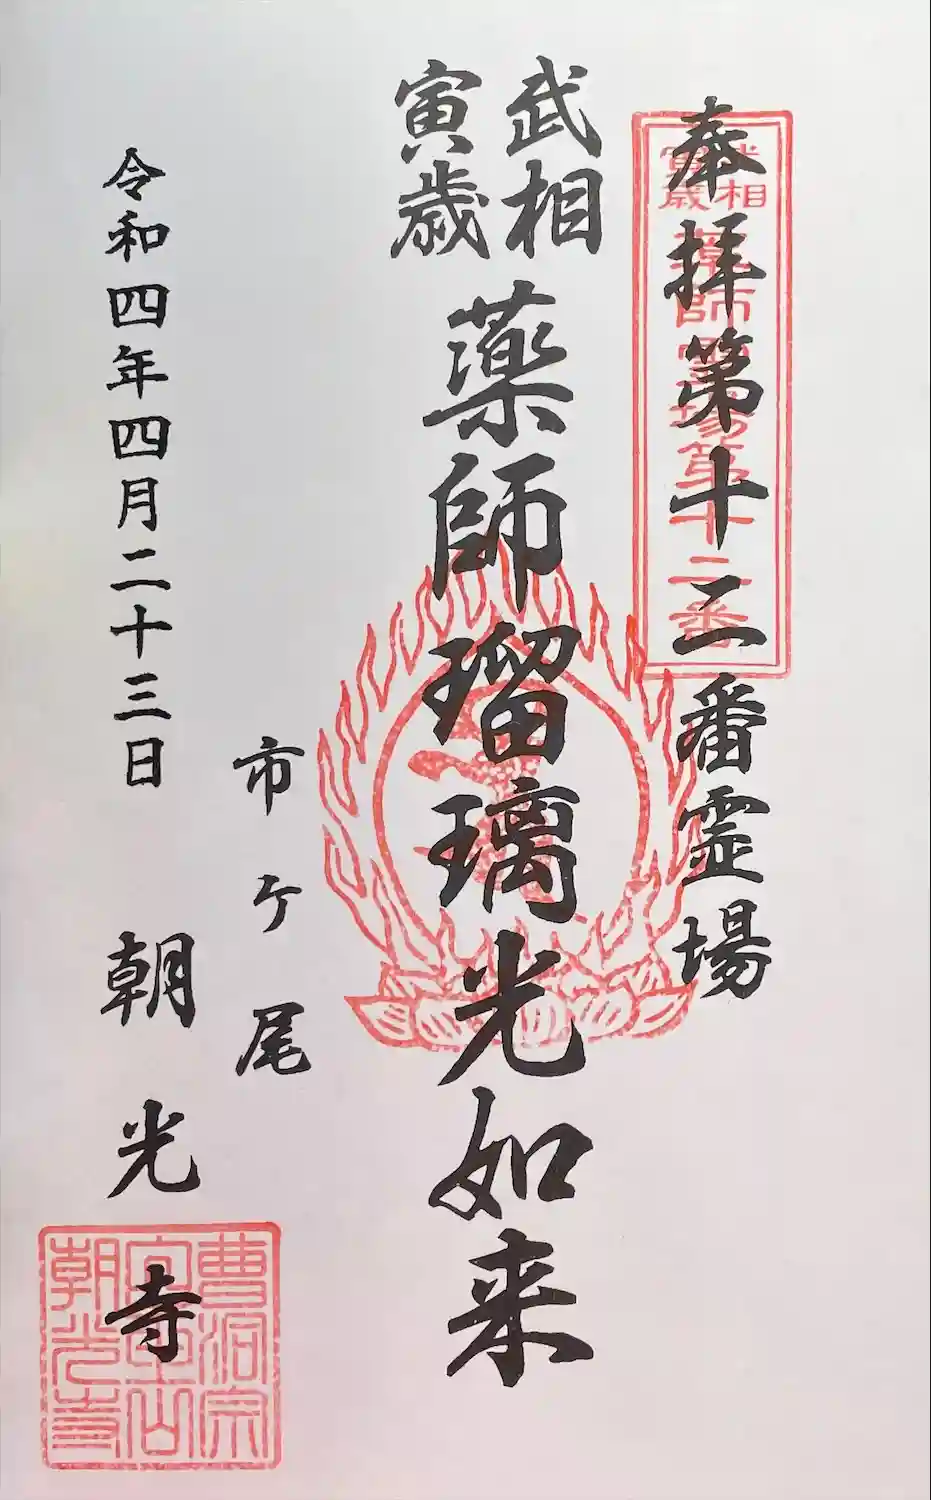 奉拝第十二番霊場
武相
寅歳
薬師瑠璃光如来
市ケ尾
令和四年四月二十三日
朝光寺
武相
寅歳
薬師霊場第十二番
曹洞宗
朝光寺